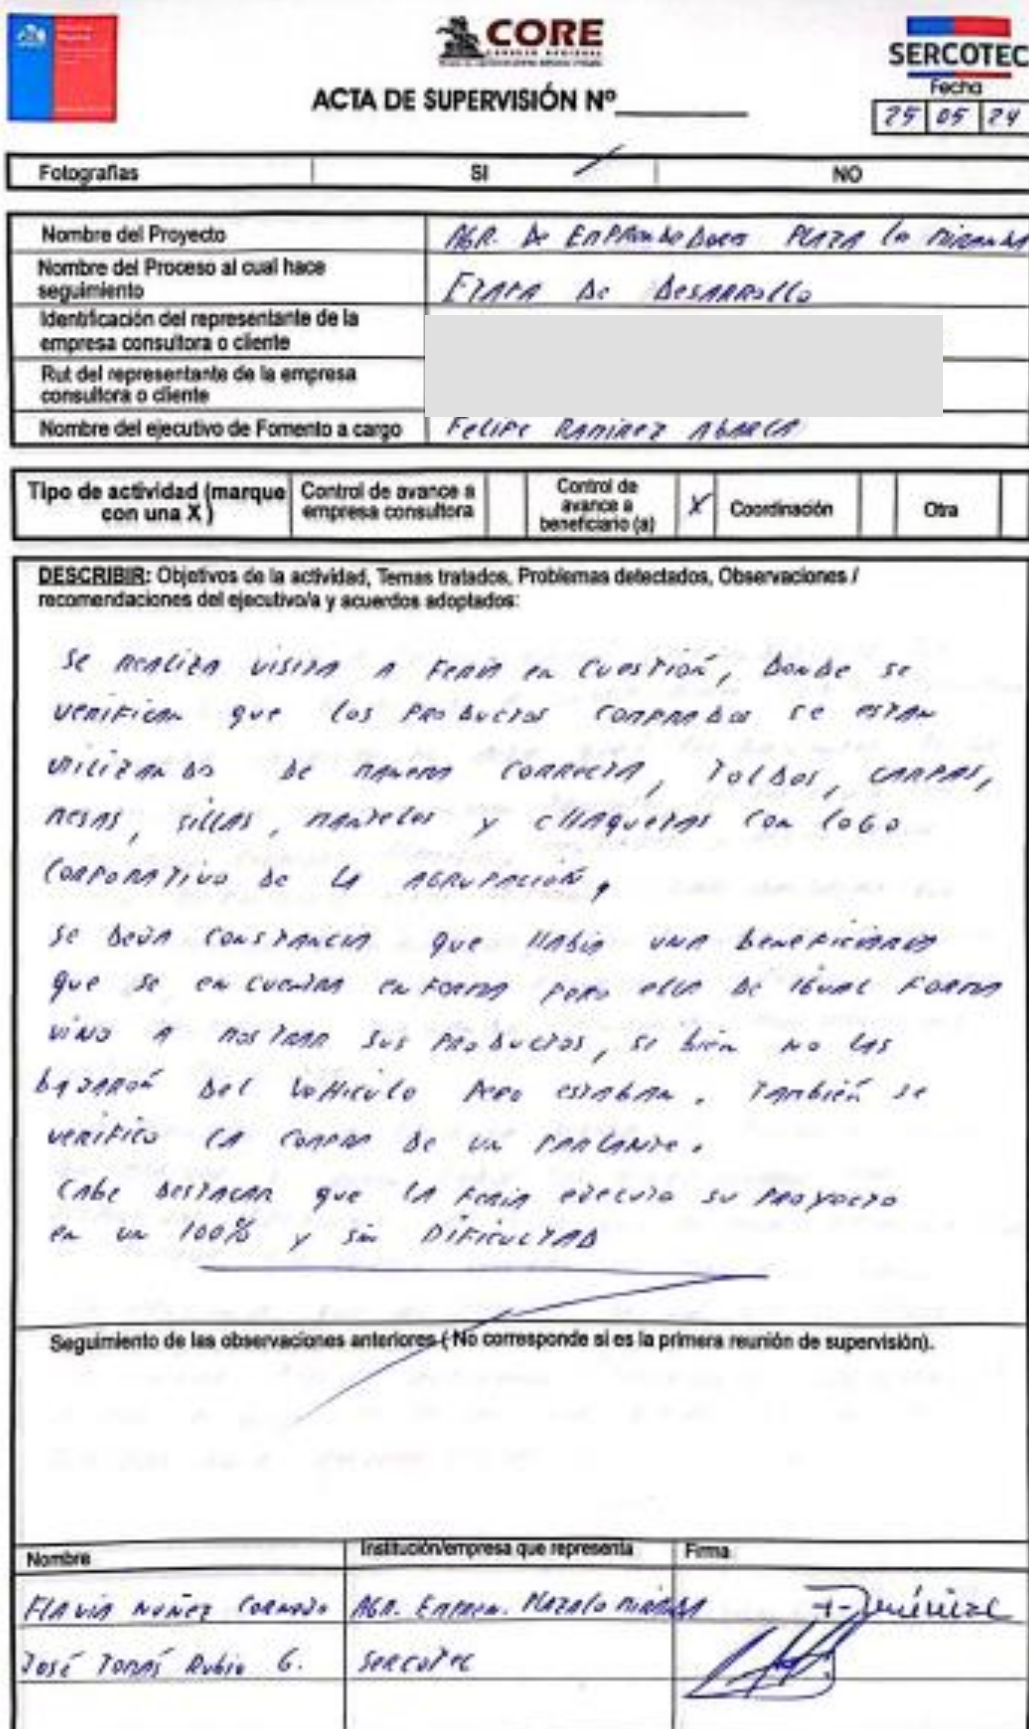 CORE
CONSEJO REGIONAL
SERCOTEC
ACTA DE SUPERVISIÓN Nº
Fecha
25 05 24
Fotografias SI / NO
Nombre del Proyecto AGR. De EMPRENDEDORES PLAZA LO MIRANDA
Nombre del Proceso al cual hace
seguimiento ETAPA De DESARROLLO
Identificación del representante de la
empresa consultora o cliente
Rut del representante de la empresa
consultora o cliente
Nombre del ejecutivo de Fomento a cargo FELIPE RAMIREZ ABARCA
Tipo de actividad (marque
con una X )
Control de avance a
empresa consultora
Control de
avance a
beneficiario (a)
X
Coordinación
Otra
DESCRIBIR: Objetivos de la actividad, Temas tratados, Problemas detectados, Observaciones /
recomendaciones del ejecutivo/a y acuerdos adoptados:
Se REALIZA VISITA A FERIA en CUESTIÓN, DONDE SE
VERIFICAN QUE LOS PRODUCTOS COMPRADOS SE ESTAN
UTILIZANDO DE MANERA CORRECTA, TOLDOS, CARPAS,
MESAS, SILLAS, MANTELES Y CHAQUETAS CON LOGO
CORPORATIVO DE LA AGRUPACIÓN,
SE DEJA CONSTANCIA QUE HABIA UNA BENEFICIARIA
QUE SE ENCUENTRA ENFERMA PERO ELLA DE IGUAL FORMA
VINO A MOSTRAR SUS PRODUCTOS, SI BIEN NO LAS
BAJARON DEL VEHICULO PERO ESTABAN. TAMBIÉN SE
VERIFICO LA COMPRA DE UN PARLANTE.
CABE DESTACAR QUE LA FERIA EJECUTO SU PROYECTO
EN UN 100% Y SIN DIFICULTAD
Seguimiento de las observaciones anteriores ( No corresponde si es la primera reunión de supervisión).
Nombre Institución/empresa que representa Firma
FLAVIA NUÑEZ CORNEJO AGR. EMPREN. PLAZA LO MIRANDA
JOSÉ TOMÁS RUBIO G. SERCOTEC